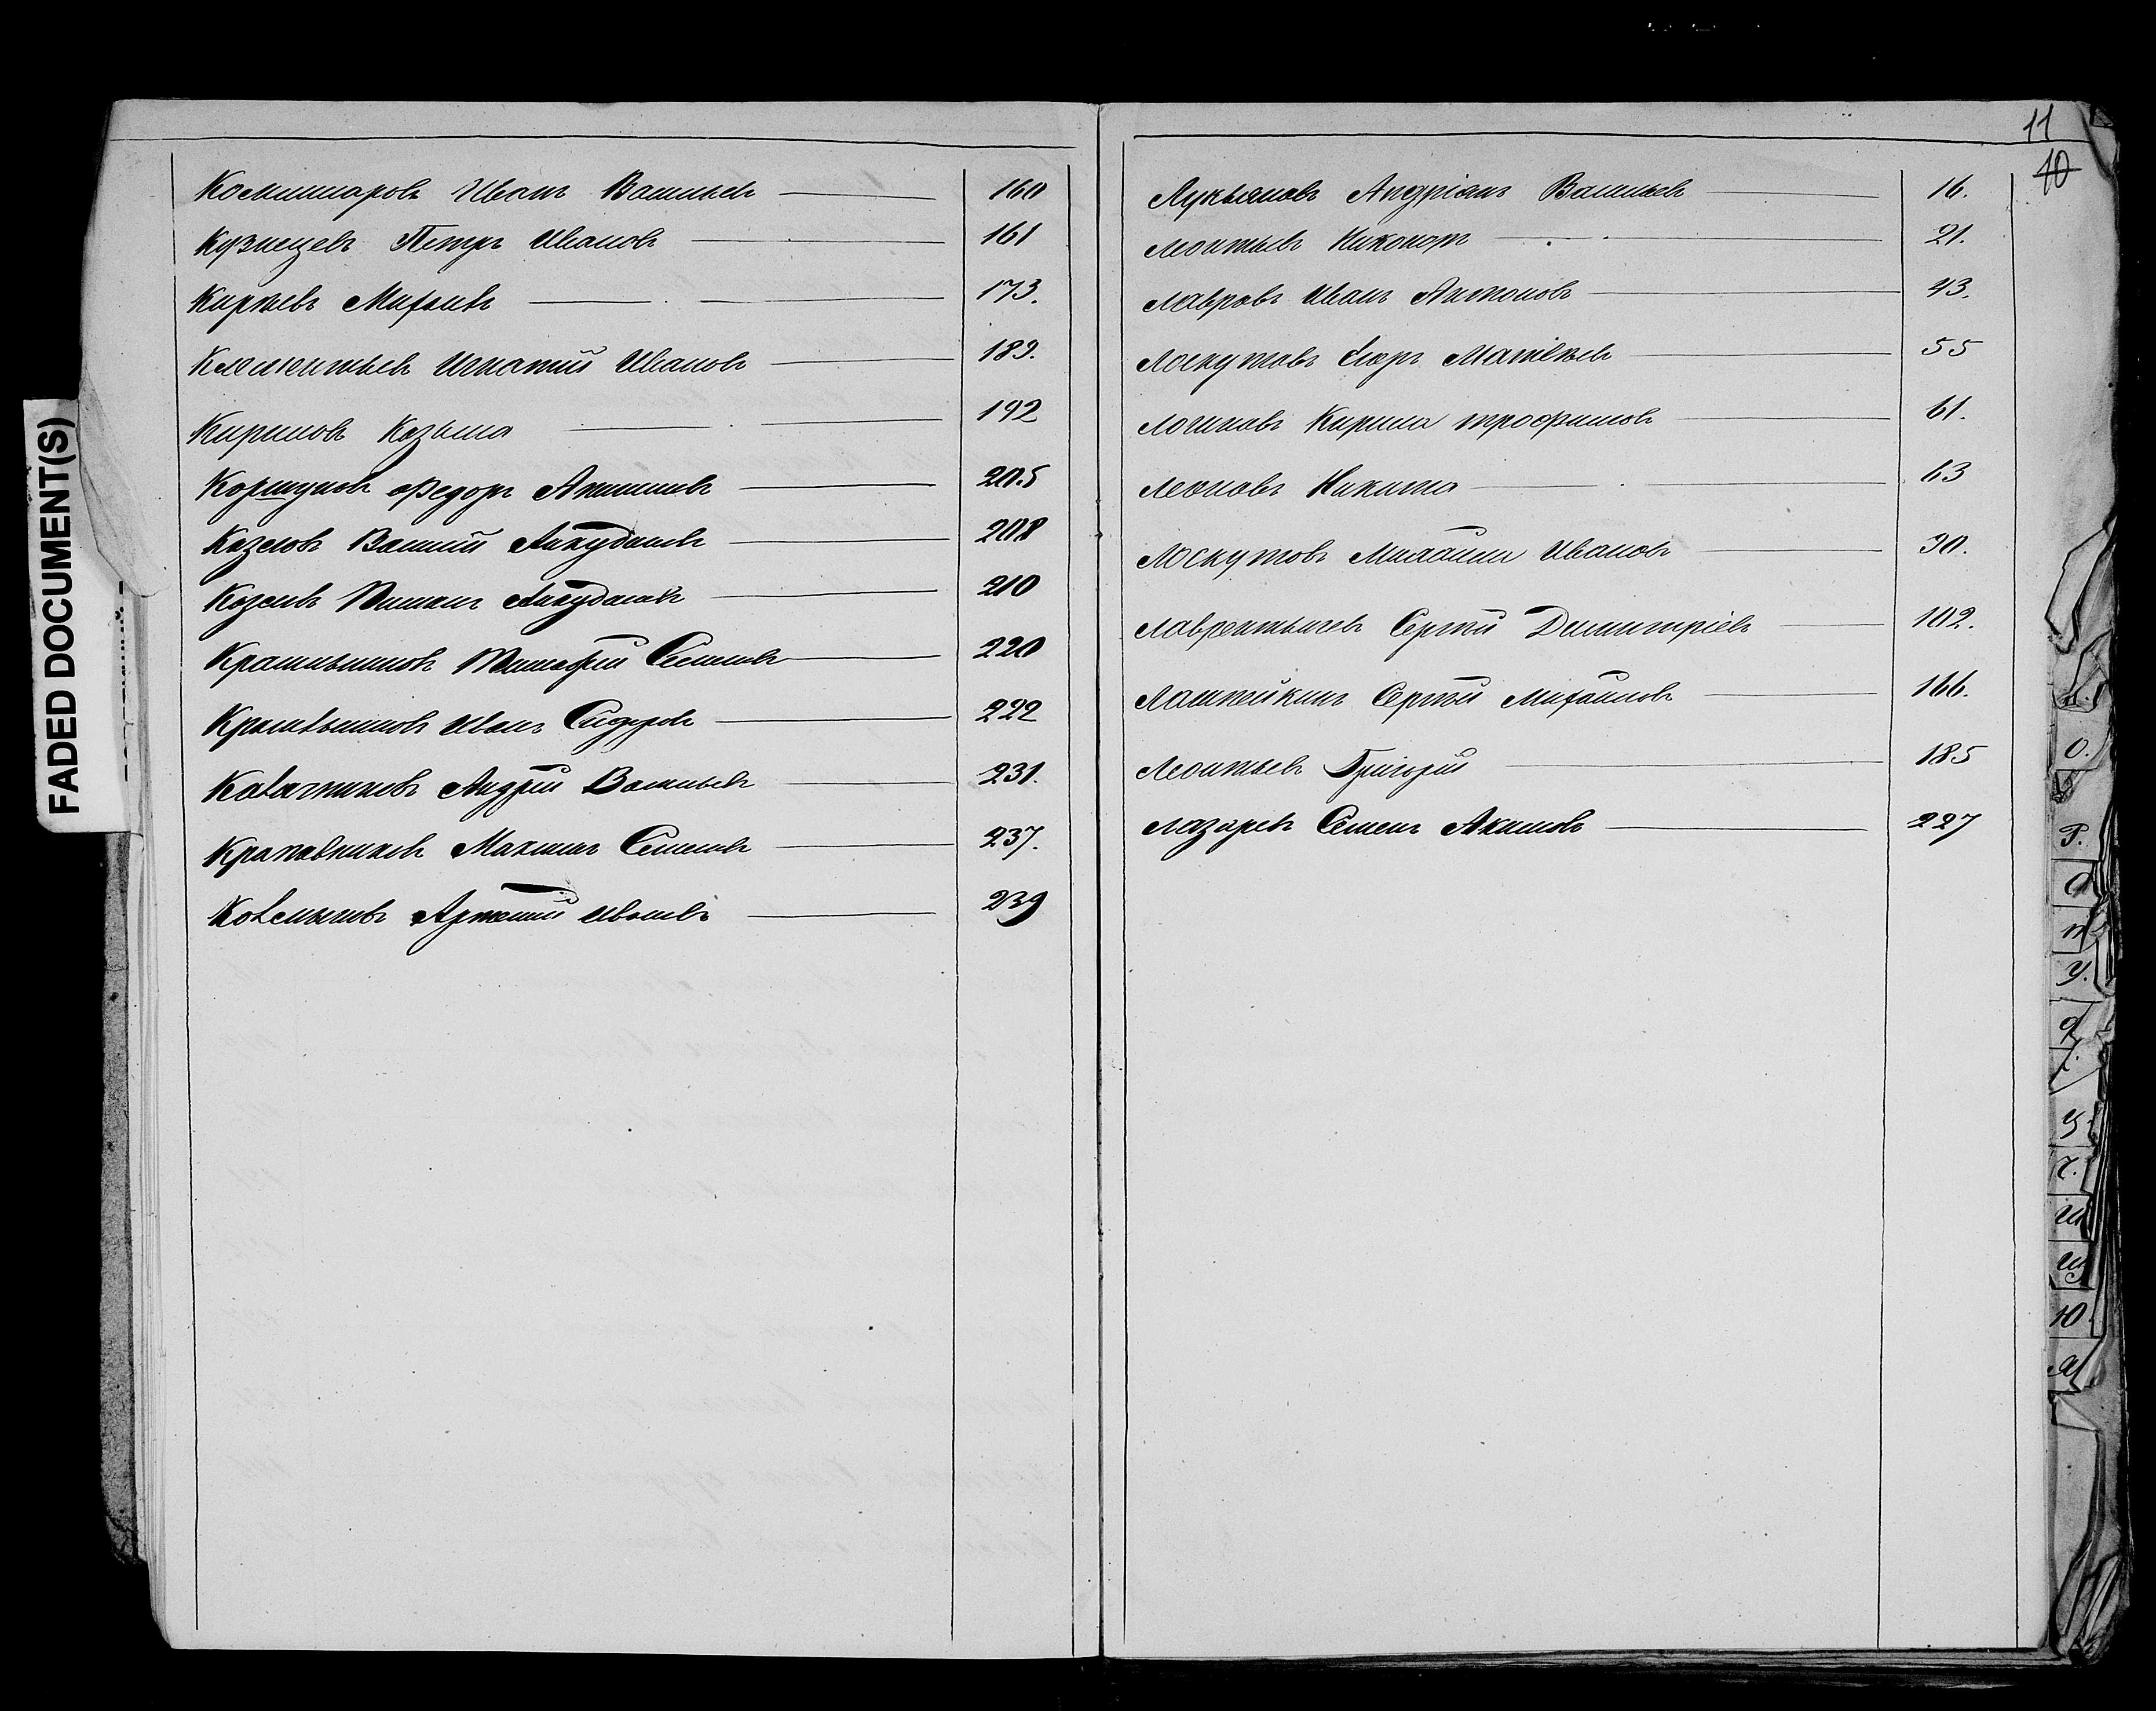 FADED DOCUMENT(S)
11
10
Комиссаровъ Иванъ Васильевъ 160
Кузнецевъ Петръ Ивановъ 161
Киреевъ Матвѣевъ 173.
Клементьевъ Игнатий Ивановъ 189.
Кириловъ Козьма 192
Коршуновъ Федоръ 205
Козловъ Василий Анкудиновъ 208
Козловъ Анкудиновъ 210
Крашенинниковъ Тимофей Семеновъ 220
Иванъ Сидоровъ 222
Андрей Васильевъ 231.
Максимъ Семеновъ 237.
Котельниковъ Артемий Ивановъ 239
Лукьяновъ Андріанъ Васильевъ 16.
Леонтьевъ Никоноръ 21.
Лавровъ Иванъ Антоновъ 43.
Лоскутовъ Егоръ Матвѣевъ 55
Логиновъ Кирила трофимовъ 61.
Леоновъ Никита 63
Лоскутовъ Михаила Ивановъ 90.
Лаврентьичевъ Сергѣй Димитріевъ 102.
Сергѣй Михайловъ 166.
Леонтьевъ Григорий 185
Лазаревъ Семенъ Акимовъ 227
О.
Р.
У.
Ч.
Ш
Щ
Ю.
Я